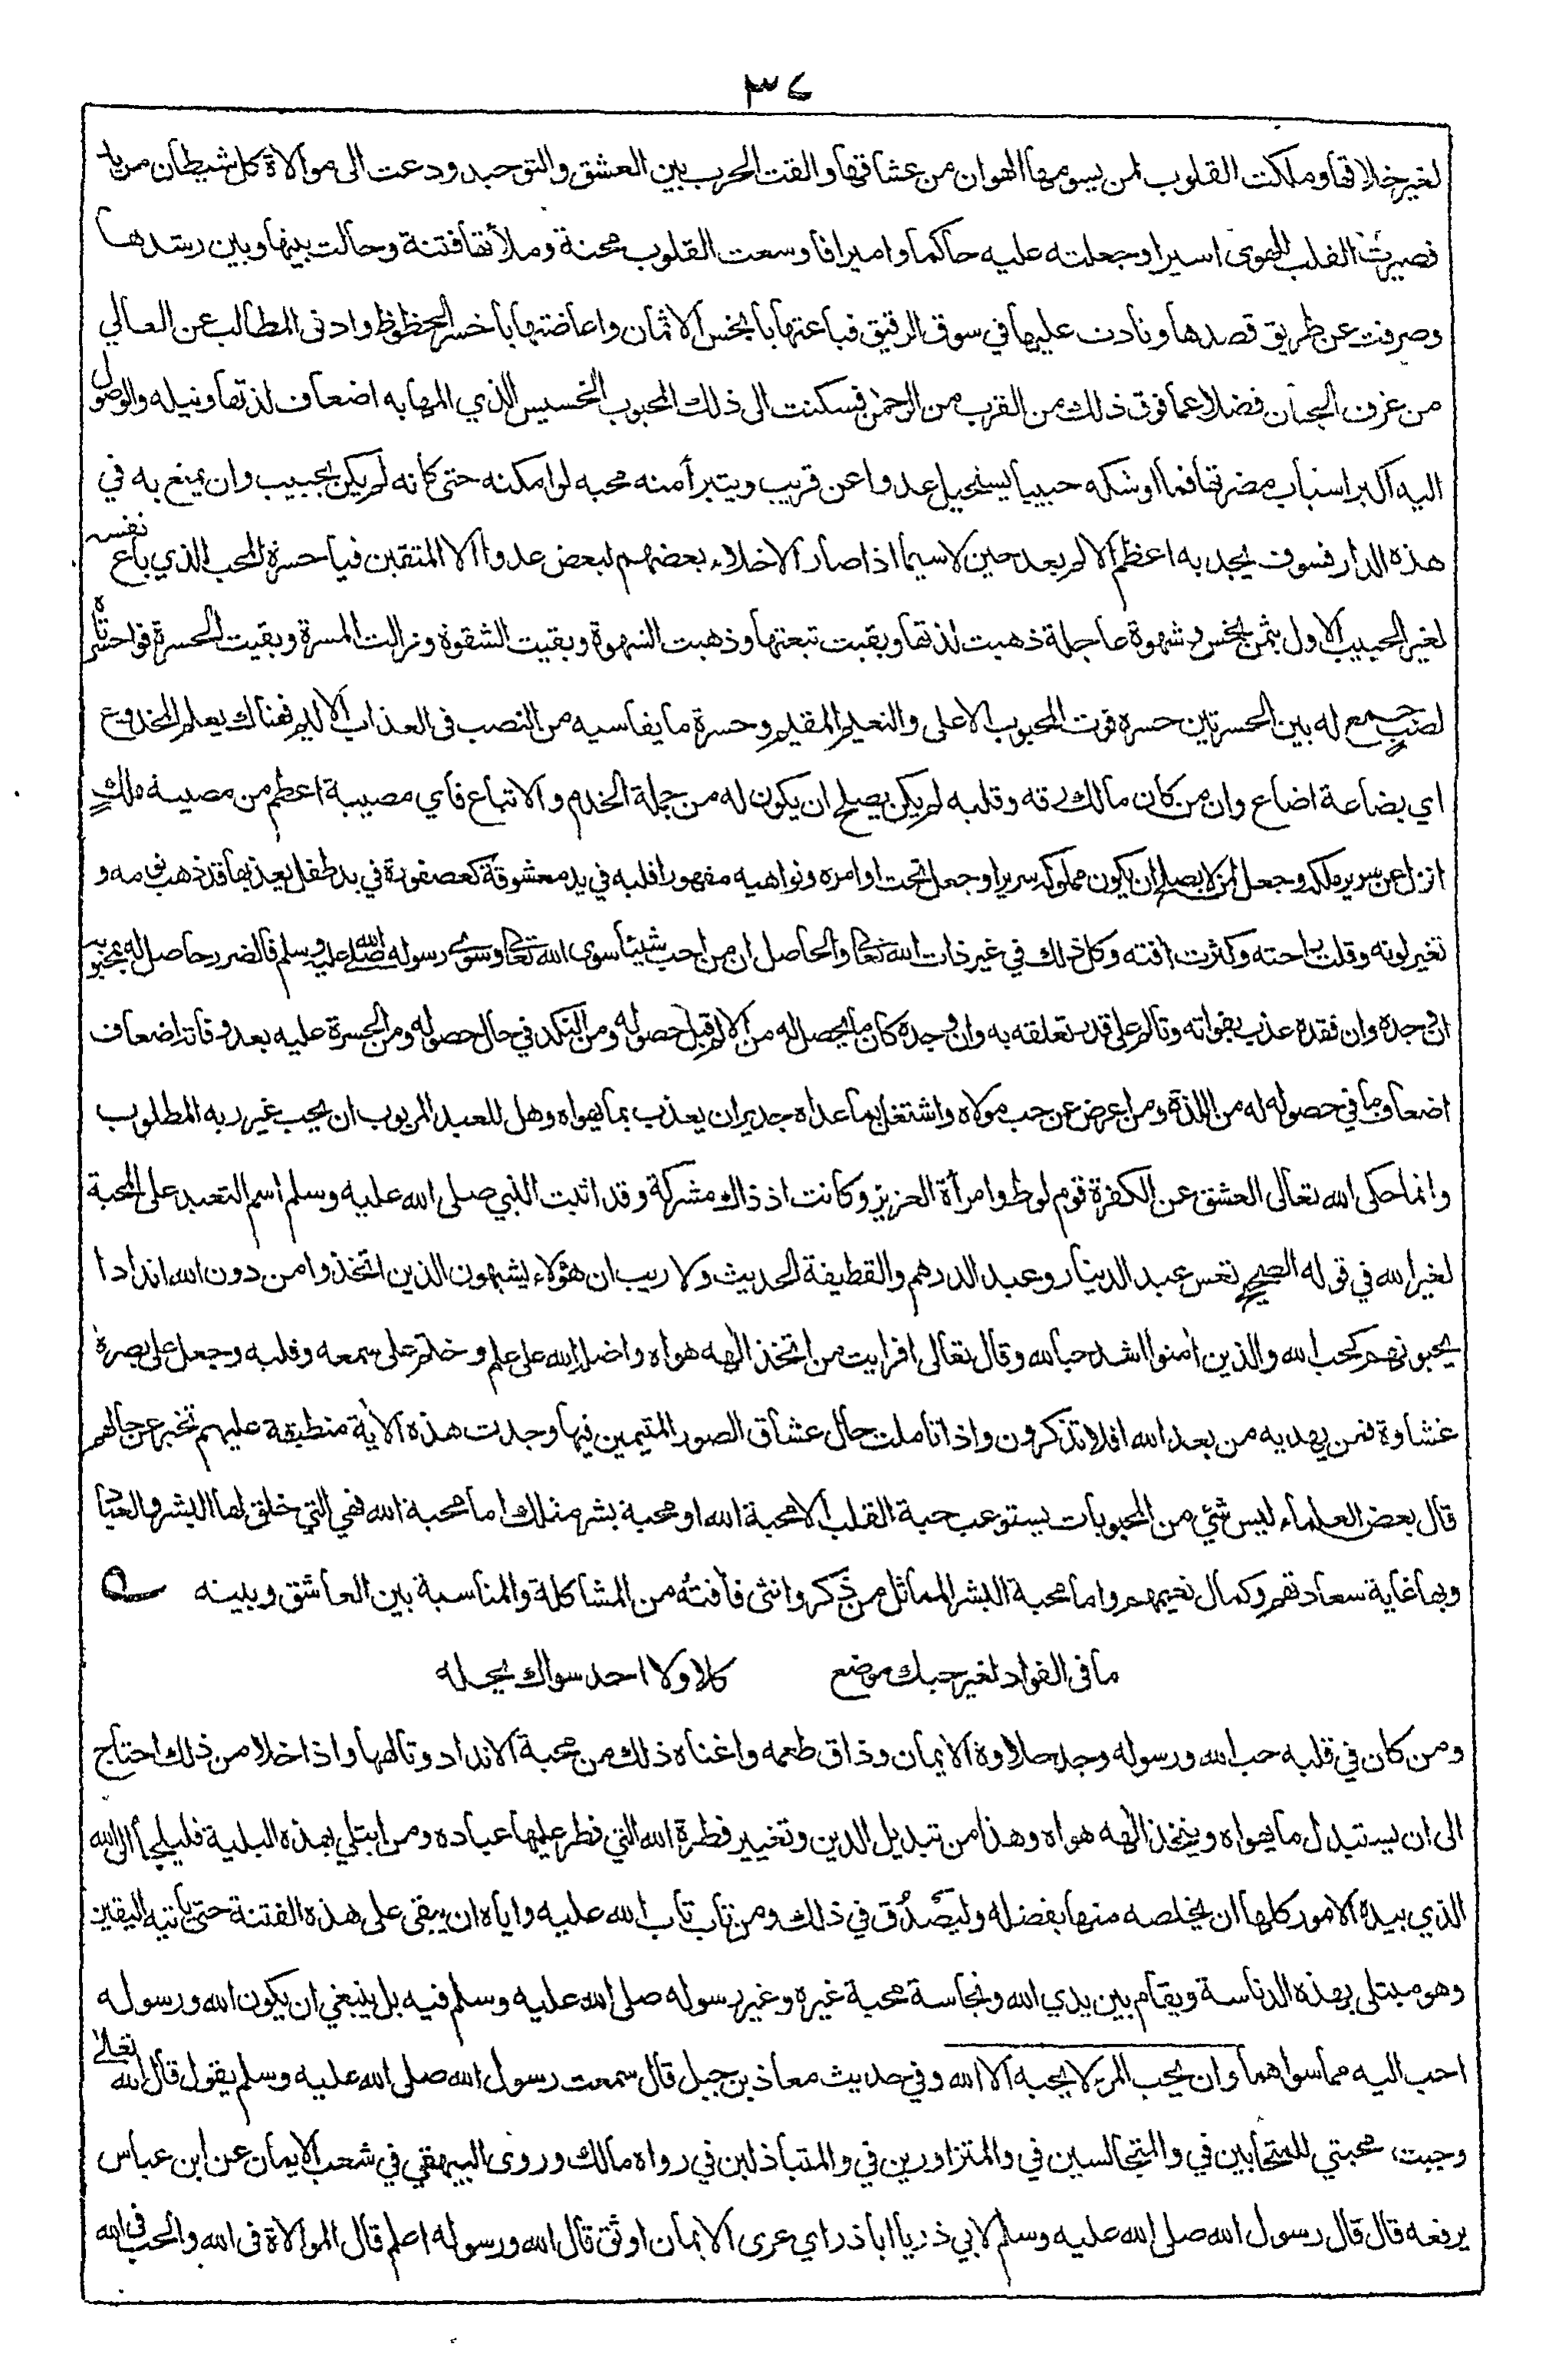 ٣٤
لغير خلاقها وملكت القلوب لمن يسومها الهوان من عشاقها والقت الحرب بين العشق والتوحيد ودعت الى موالاة كل شيطان مريد
فصيرت القلب للهوى اسيرا وجعلته عليه حاكما واميرا فاوسعت القلوب محنة وملأتها فتنة وحالت بينها وبين رشدها
وصرفت عن طريق قصدها ونادت عليها في سوق الرقيق فباعتها بابخس الاثمان واعاضتها باخس الحظوظ وادنى المطالب عن العالي
من غرف الجنان فضلا عما فوق ذلك من القرب من الرحمن فسكنت الى ذلك المحبوب الخسيس الذي المها به اضعاف لذتها ونيله والوصول
اليه اكبر اسباب مضرتها فما اوشكه حبيبا يستحيل عدوا عن قريب ويتبرأ منه محبه لو امكنه حتى كانه لم يكن بحبيب وان يمتع به في
هذه الدار فسوف يجد به اعظم الالم بعد حين لاسيما اذا صار الاخلاء بعضهم لبعض عدوا الا المتقين فيا حسرة المحب الذي باع نفسه
لغير الحبيب الاول بثمن بخس وشهوة عاجلة ذهبت لذتها وبقيت تبعتها وذهبت الشهوة وبقيت الشقوة وزالت المسرة وبقيت الحسرة فواحسرتاه
لصب جمع له بين الحسرتين حسرة فوت المحبوب الاعلى والنعيم المقيم وحسرة ما يقاسيه من النصب في العذاب الاليم فهناك يعلم المخدوع
اي بضاعة اضاع وان من كان مالك رقه وقلبه لم يكن يصلح ان يكون له من جملة الخدم والاتباع فاي مصيبة اعظم من مصيبة ملك
انزل عن سرير ملكه وجعل لمن لا يصلح ان يكون مملوكه سريرا وجعل تحت اوامره ونواهيه مقهورا قلبه في يد معشوقة كعصفورة في يد طفل يعذبها قد ذهب نومه و
تغير لونه وقلت راحته وكثرت افته وكل ذلك في غير ذات الله تعالى والحاصل ان من احب شيئا سوى الله تعالى وسوى رسوله صلى الله عليه وسلم فالضرر حاصل له بمحبوبه
ان وجده وان فقده عذب بفواته وتالم على قدر تعلقه به وان وجده كان ما يحصل له من الالم قبل حصوله ومن النكد في حال حصوله ومن الحسرة عليه بعد وفاته اضعاف
اضعاف ما في حصوله له من اللذة ومن اعرض عن حب مولاه واشتغل بما عداه جدير ان يعذب بما يهواه وهل للعبد المربوب ان يحب غير ربه المطلوب
وانما حكى الله تعالى العشق عن الكفرة قوم لوط وامرأة العزيز وكانت اذ ذاك مشركة وقد اثبت النبي صلى الله عليه وسلم اسم التعبد على المحبة
لغير الله في قوله الصحيح تعس عبد الدينار وعبد الدرهم والقطيفة الحديث ولا ريب ان هؤلاء يشبهون الذين اتخذوا من دون الله اندادا
يحبونهم كحب الله والذين امنوا اشد حبا لله وقال تعالى افرايت من اتخذ الهه هواه واضله الله على علم وختم على سمعه وقلبه وجعل على بصره
غشاوة فمن يهديه من بعد الله افلا تذكرون واذا تاملت حال عشاق الصور المتيمين فيها وجدت هذه الاية منطبقة عليهم تخبر عن حالهم
قال بعض العلماء ليس شئ من المحبوبات يستوعب حبة القلب الا محبة الله او محبة بشر مثلك اما محبة الله فهي التي خلق لها البشر والعباد
وبها غاية سعادتهم وكمال نعيمهم واما محبة البشر المماثل من ذكر وانثى فافته من المشاكلة والمناسبة بين العاشق وبينه
ما في الفواد لغير حبك موضع كلا ولا احد سواك يحله
ومن كان في قلبه حب الله ورسوله وجد حلاوة الايمان وذاق طعمه واغناه ذلك من محبة الانداد وتالهها واذا خلا من ذلك احتاج
الى ان يستبدل ما يهواه ويتخذ الهه هواه وهذا من تبديل الدين وتغيير فطرة الله التي فطر عليها عباده ومن ابتلي بهذه البلية فليلجأ الى الله
الذي بيده الامور كلها ان يخلصه منها بفضله وليصدق في ذلك ومن تاب تاب الله عليه واياه ان يبقى على هذه الفتنة حتى ياتيه اليقين
وهو مبتلى بهذه الدناسة ويقام بين يدي الله ونجاسة محبة غيره وغير رسوله صلى الله عليه وسلم فيه بل ينبغي ان يكون الله ورسوله
احب اليه مما سواهما وان يحب المرء لا يحبه الا الله وفي حديث معاذ بن جبل قال سمعت رسول الله صلى الله عليه وسلم يقول قال الله تعالى
وجبت محبتي للمتحابين في والمتجالسين في والمتزاورين في والمتباذلين في رواه مالك وروى البيهقي في شعب الايمان عن ابن عباس
يرفعه قال قال رسول الله صلى الله عليه وسلم لابي ذر يا اباذر اي عرى الايمان اوثق قال الله ورسوله اعلم قال الموالاة في الله والحب في الله